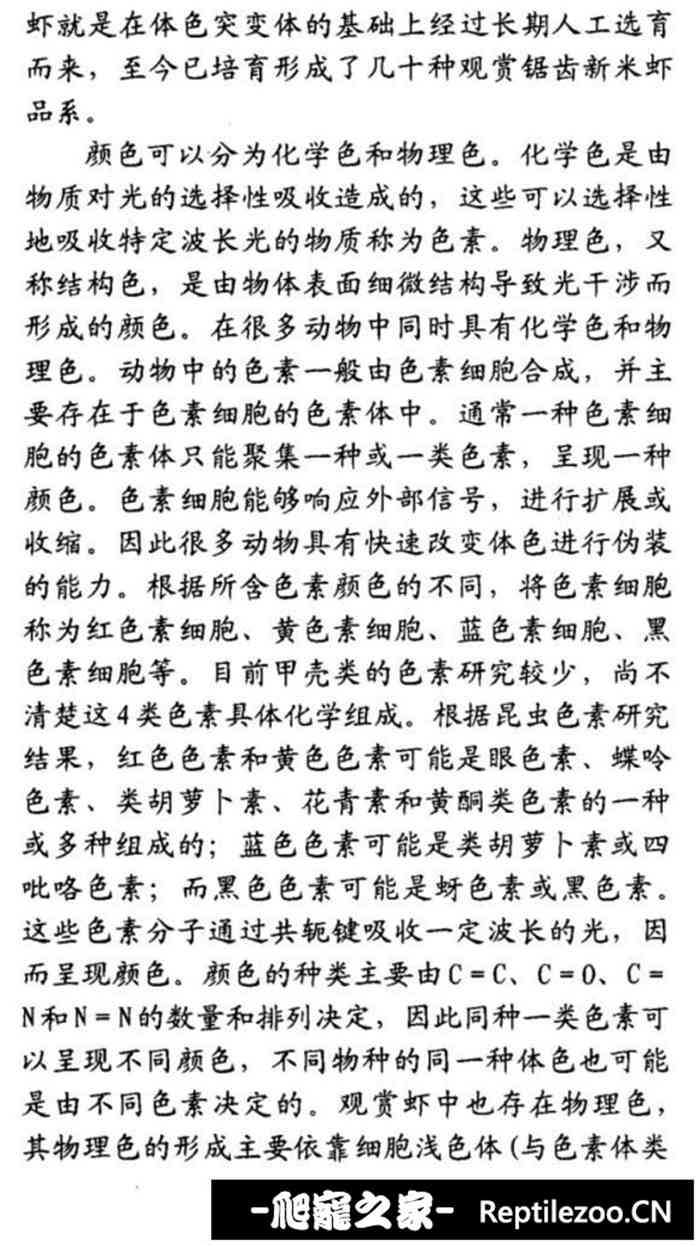 虾就是在体色突变体的基础上经过长期人工选育
而来，至今已培育形成了几十种观赏锯齿新米虾
品系。
颜色可以分为化学色和物理色。化学色是由
物质对光的选择性吸收造成的，这些可以选择性
地吸收特定波长光的物质称为色素。物理色，又
称结构色，是由物体表面细微结构导致光干涉而
形成的颜色。在很多动物中同时具有化学色和物
理色。动物中的色素一般由色素细胞合成，并主
要存在于色素细胞的色素体中。通常一种色素细
胞的色素体只能聚集一种或一类色素，呈现一种
颜色。色素细胞能够响应外部信号，进行扩展或
收缩。因此很多动物具有快速改变体色进行伪装
的能力。根据所含色素颜色的不同，将色素细胞
称为红色素细胞、黄色素细胞、蓝色素细胞、黑
色素细胞等。目前甲壳类的色素研究较少，尚不
清楚这4类色素具体化学组成。根据昆虫色素研究
结果，红色色素和黄色色素可能是眼色素、蝶呤
色素、类胡萝卜素、花青素和黄酮类色素的一种
或多种组成的；蓝色色素可能是类胡萝卜素或四
吡咯色素；而黑色色素可能是蚜色素或黑色素。
这些色素分子通过共轭键吸收一定波长的光，因
而呈现颜色。颜色的种类主要由C=C、C=O、C=
N和N=N的数量和排列决定，因此同种一类色素可
以呈现不同颜色，不同物种的同一种体色也可能
是由不同色素决定的。观赏虾中也存在物理色，
其物理色的形成主要依靠细胞浅色体(与色素体类
-爬寵之家- Reptilezoo.CN